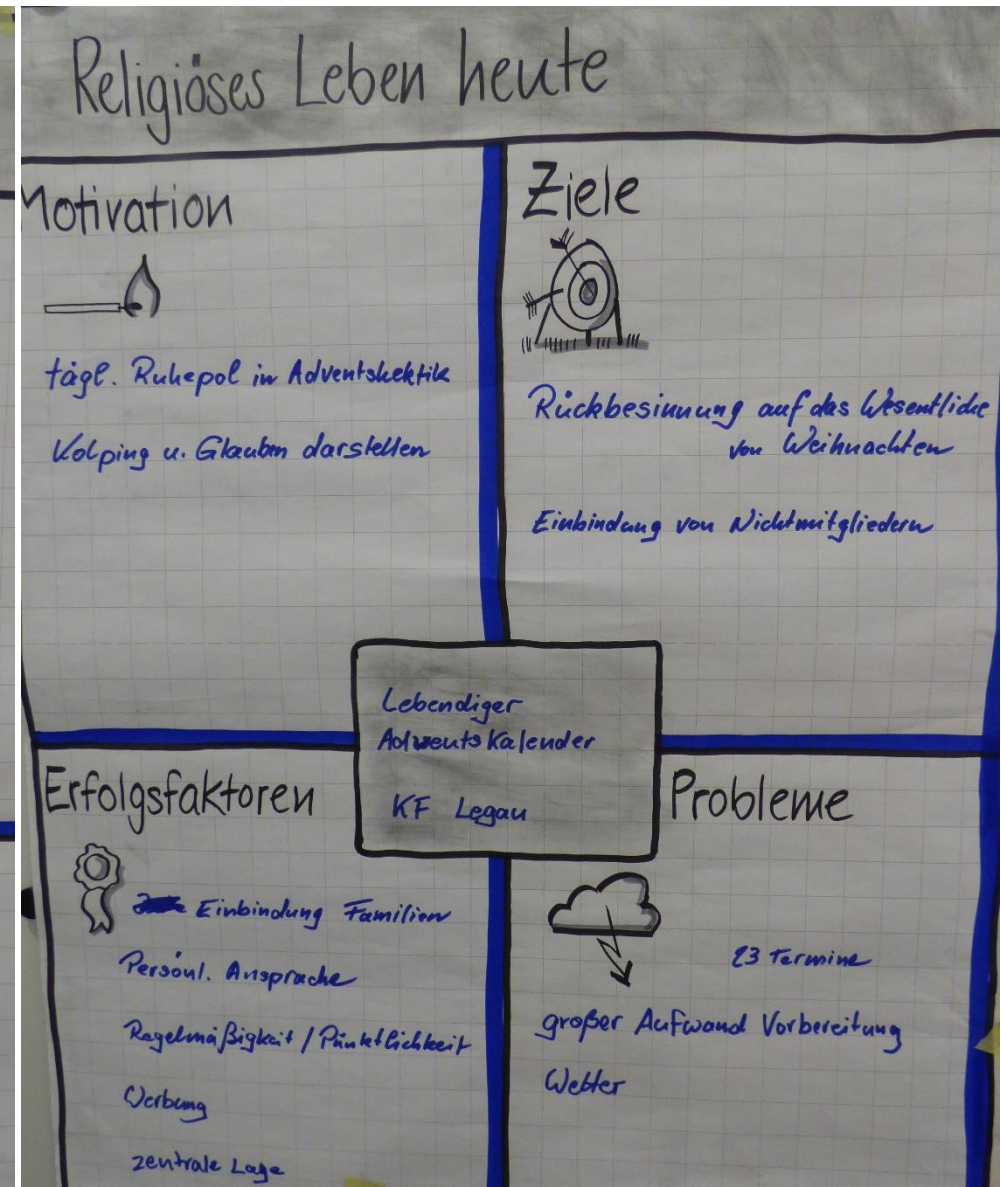 Religiöses Leben heute
Motivation
tägl. Ruhepol in Adventshektik
Kolping u. Glauben darstellen
Ziele
Rückbesinnung auf das Wesentliche
von Weihnachten
Einbindung von Nichtmitgliedern
Lebendiger
Adventskalender
KF Legau
Erfolgsfaktoren
Einbindung Familien
Persönl. Ansprache
Regelmäßigkeit / Pünktlichkeit
Werbung
zentrale Lage
Probleme
23 Termine
großer Aufwand Vorbereitung
Wetter